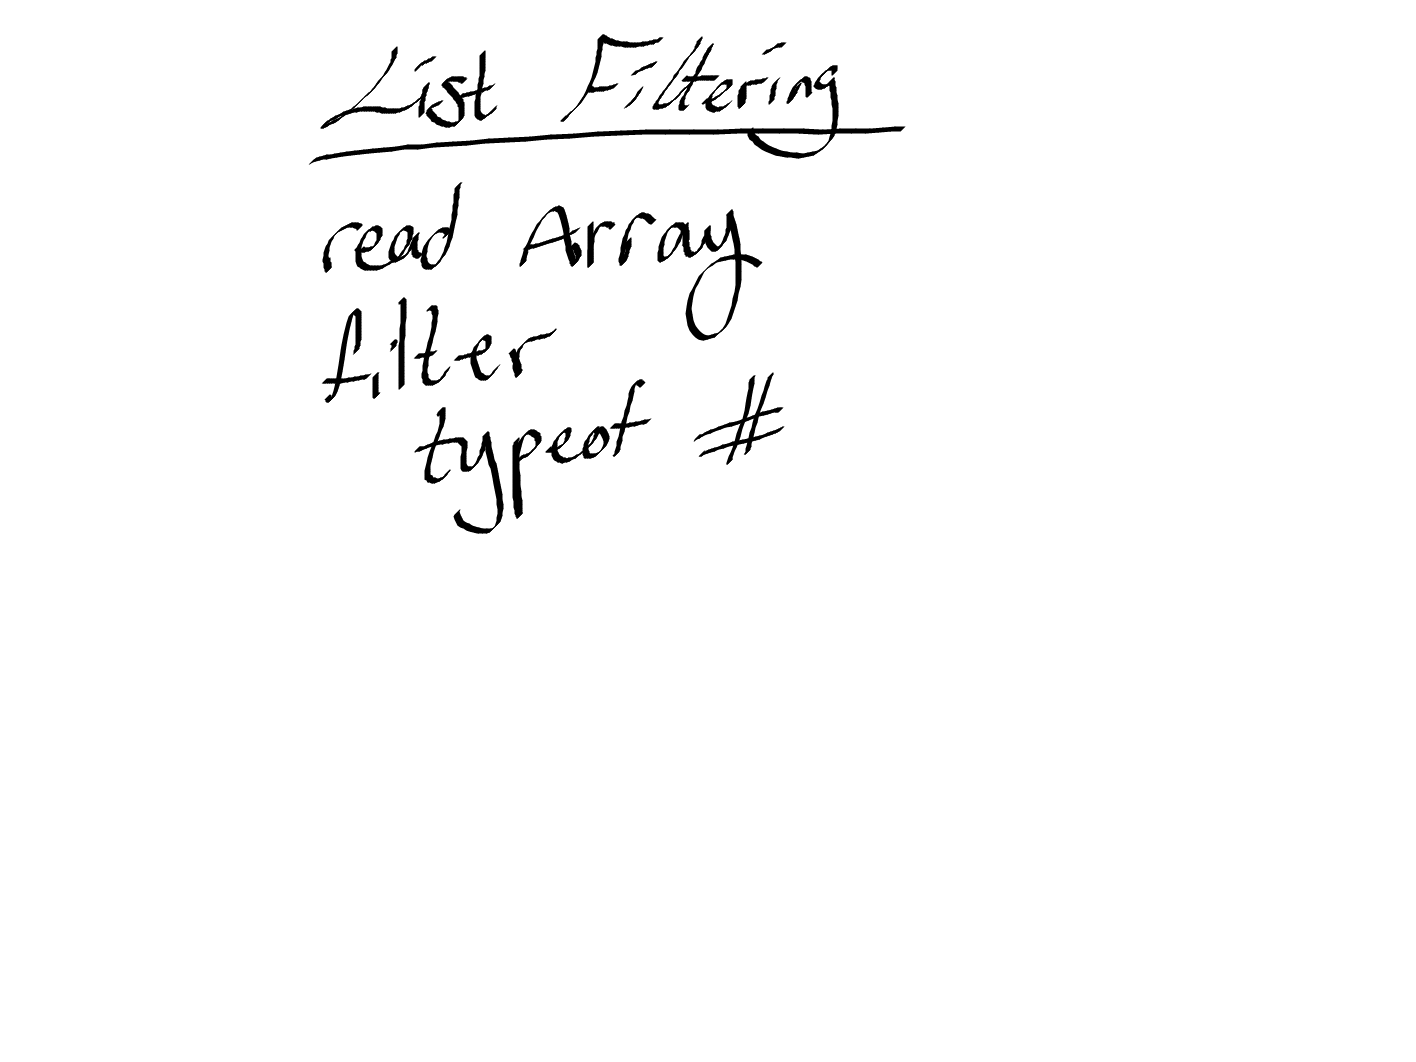 List Filtering
read Array
filter
typeof #